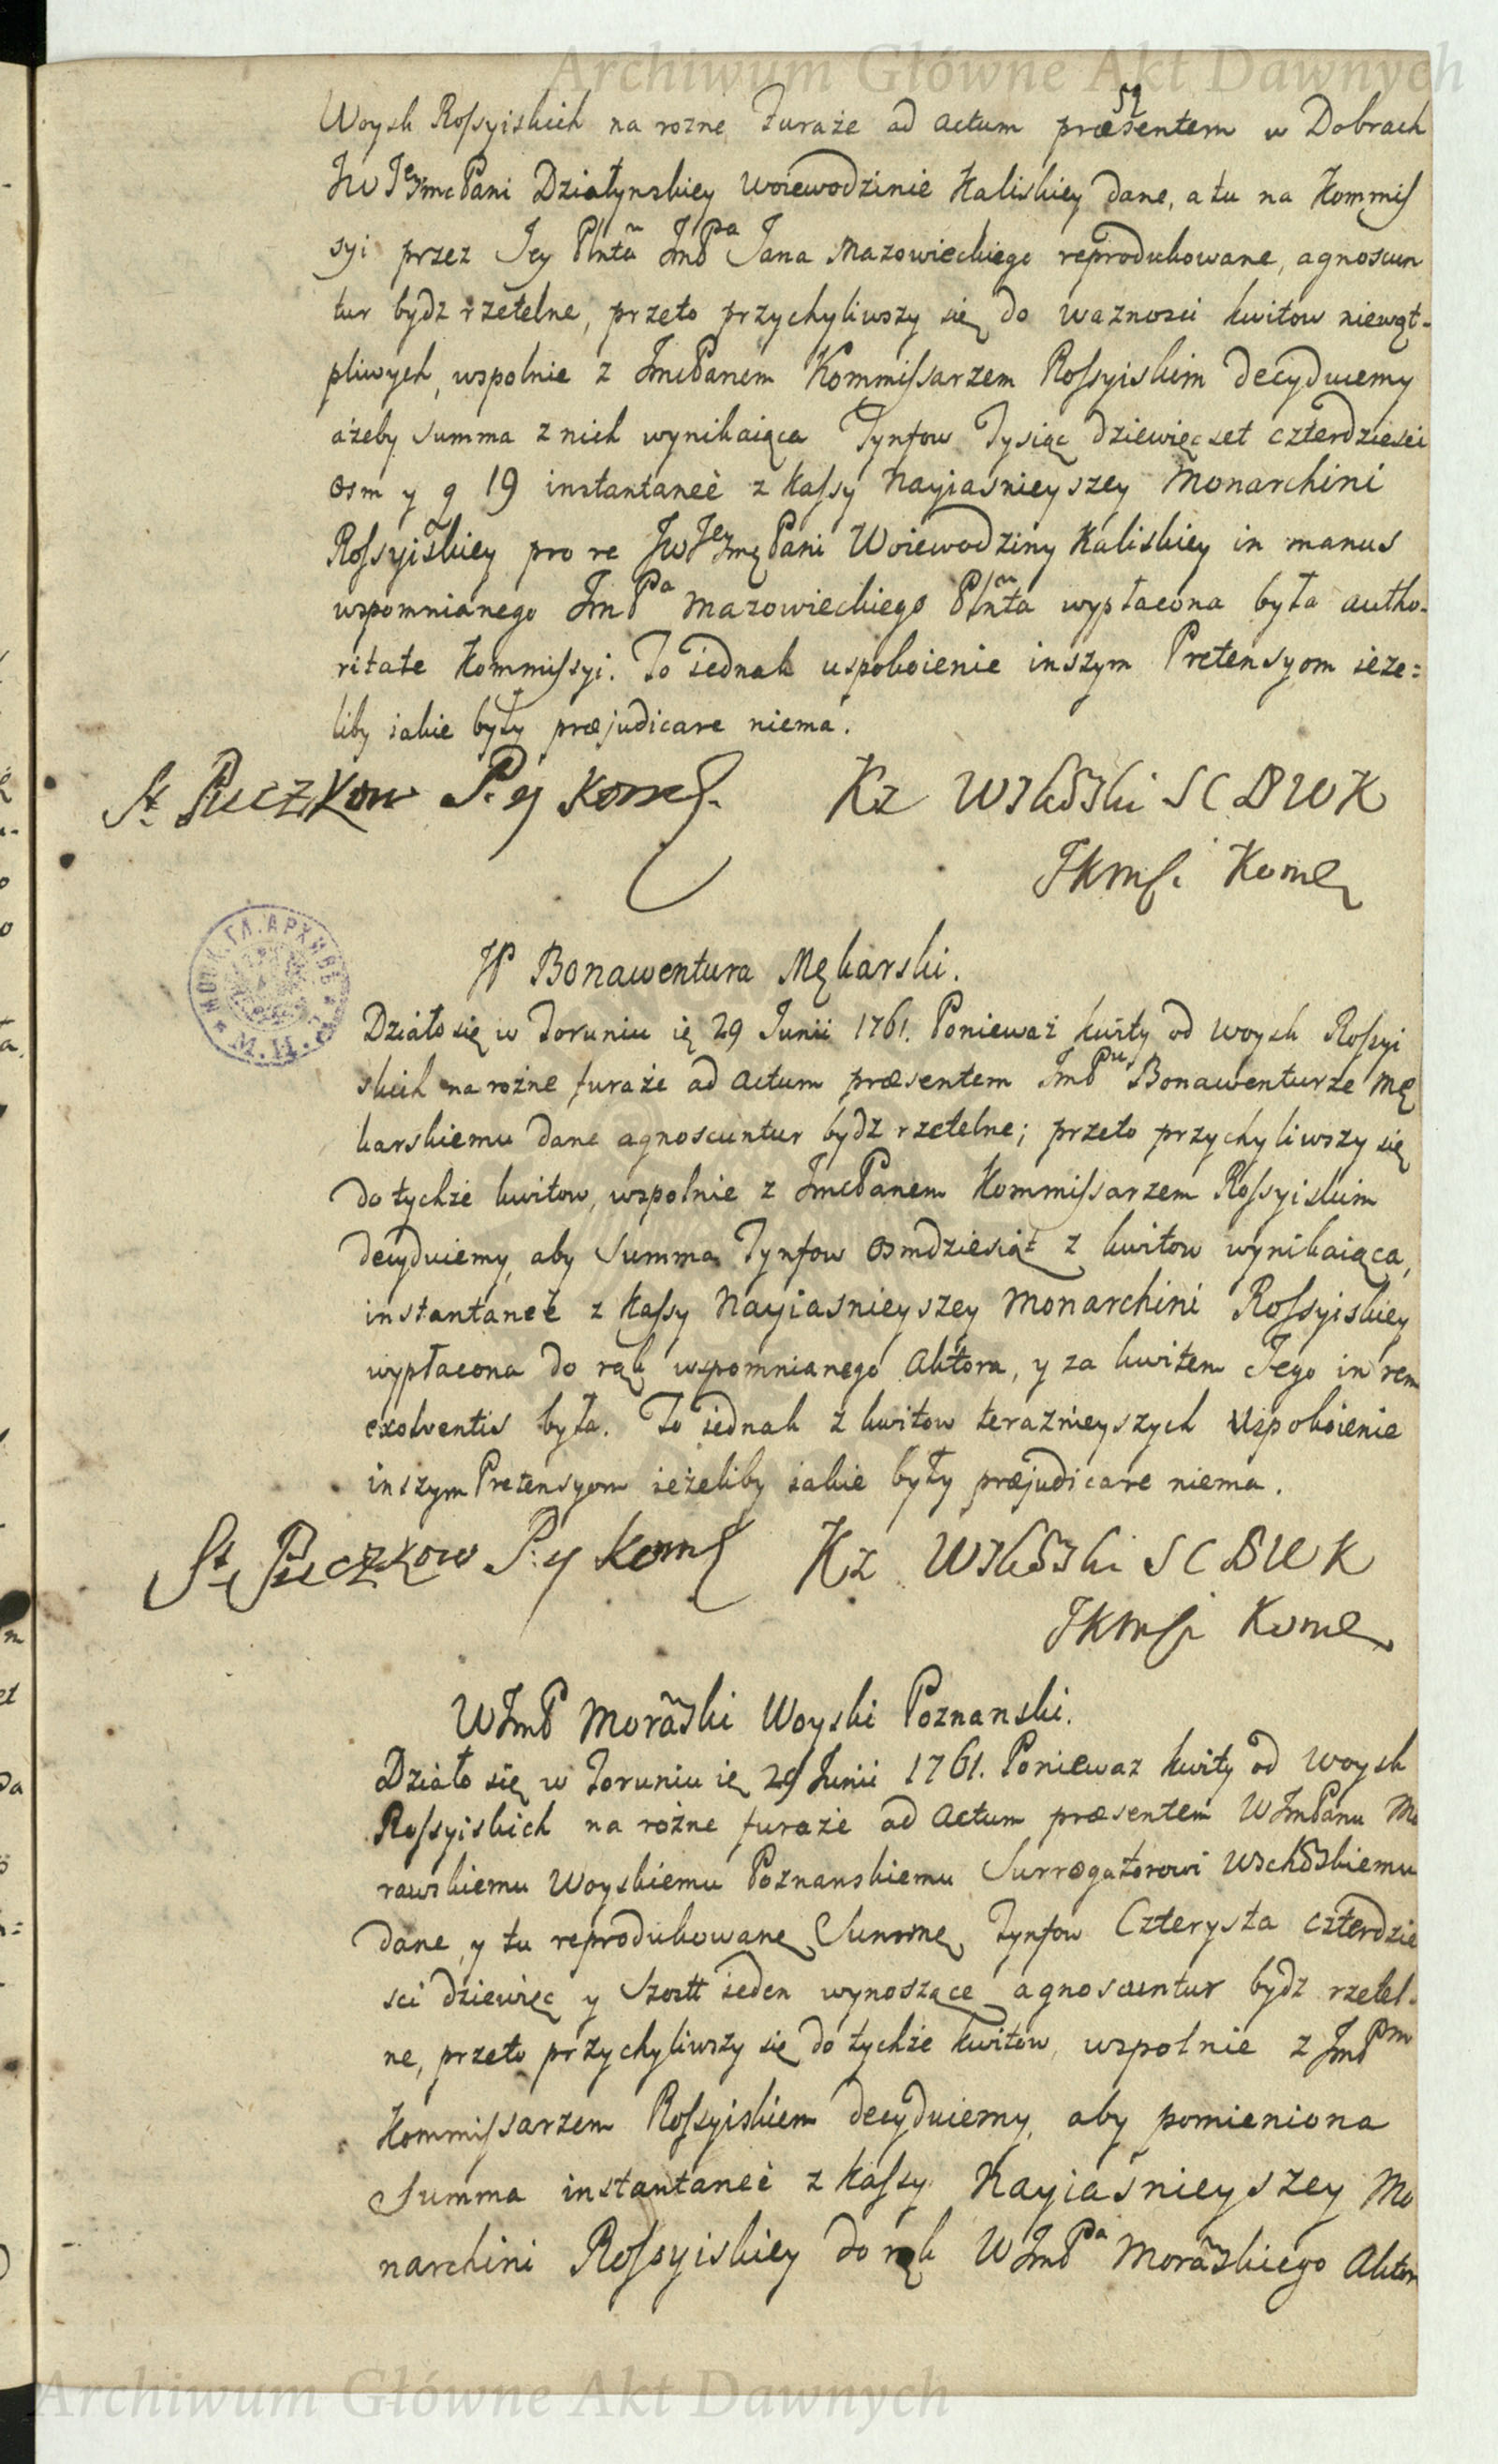 Archiwum Główne Akt Dawnych
59
Woysk Rossyiskich na rozne Furaże ad actum præsentem w Dobrach
JW JeymcPani Działynskiey Woiewodzinie Kaliskiey dane, a tu na Kommis
syi przez Jey Plnta JmPa Jana Mazowieckiego reprodukowane, agnoscun
tur bydz rzetelne, przeto przychyliwszy się do waznosci kwitow niewąt-
pliwych, wspolnie z JmcPanem Kommissarzem Rossyiskim decyduiemy
ażeby Summa z nich wynikaiąca Tynfow Tysiąc dziewięcset czterdziesci
osm y g 19 instantaneè z Kassy Nayiasnieyszey Monarchini
Rossyiskiey pro re JWJeymę Pani Woiewodziny Kaliskiey in manus
wspomnianego JmPa Mazowieckiego Plnta wypłacona była autho-
ritate Kommissyi. To iednak uspokoienie inszym Pretensyom ieże=
liby iakie były præjudicare niema.
St Puczkow P. y Kom
Kz Wskõski SCBWK
JKMsi Kome
JP Bonawentura Mękarski.
Działo się w Toruniu ię 29 Junii 1761. Ponieważ kwity od Woysk Rossyi
skich na rożne furaże ad actum præsentem JmPu Bonawenturze Mę
karskiemu dane agnoscuntur bydz rzetelne; przeto przychyliwszy się
do tychże kwitow, wspolnie z JmcPanem Kommissarzem Rossyiskim
decyduiemy, aby Summa Tynfow osmdziesiąt z kwitow wynikaiąca,
instantaneè z Kassy Nayiasnieyszey Monarchini Rossyiskiey
wypłacona do rąk wspomnianego Aktora, y za kwitem Jego in rem
exolventis była. To iednak z kwitow teraznieyszych Uspokoienie
inszym Pretensyom ieżeliby iakie były præjudicare niema.
St Puczkow P. y Kom
Kz Wskõski SCBWK
JKMsi Kome
WJmP Morãski Woyski Poznanski.
Działo się w Toruniu ię 29 Junii 1761. Poniewaz kwity od Woysk
Rossyiskich na rożne furaże ad actum præsentem WJmPanu Mo
rawskiemu Woyskiemu Poznanskiemu Surrogatorowi Wschõskiemu
dane, y tu reprodukowane Summę Tynfow Czterysta czterdzie
sci dziewięc y Szostt ieden wynoszące agnoscuntur bydz rzetel-
ne, przeto przychyliwszy się do tychże kwitow, wspolnie z JmPm
Kommissarzem Rossyiskiem decyduiemy, aby pomieniona
Summa instantaneè z Kassy Nayiaśnieyszey Mo
narchini Rossyiskiey do rąk WJmPa Morãskiego Aktor
Archiwum Główne Akt Dawnych